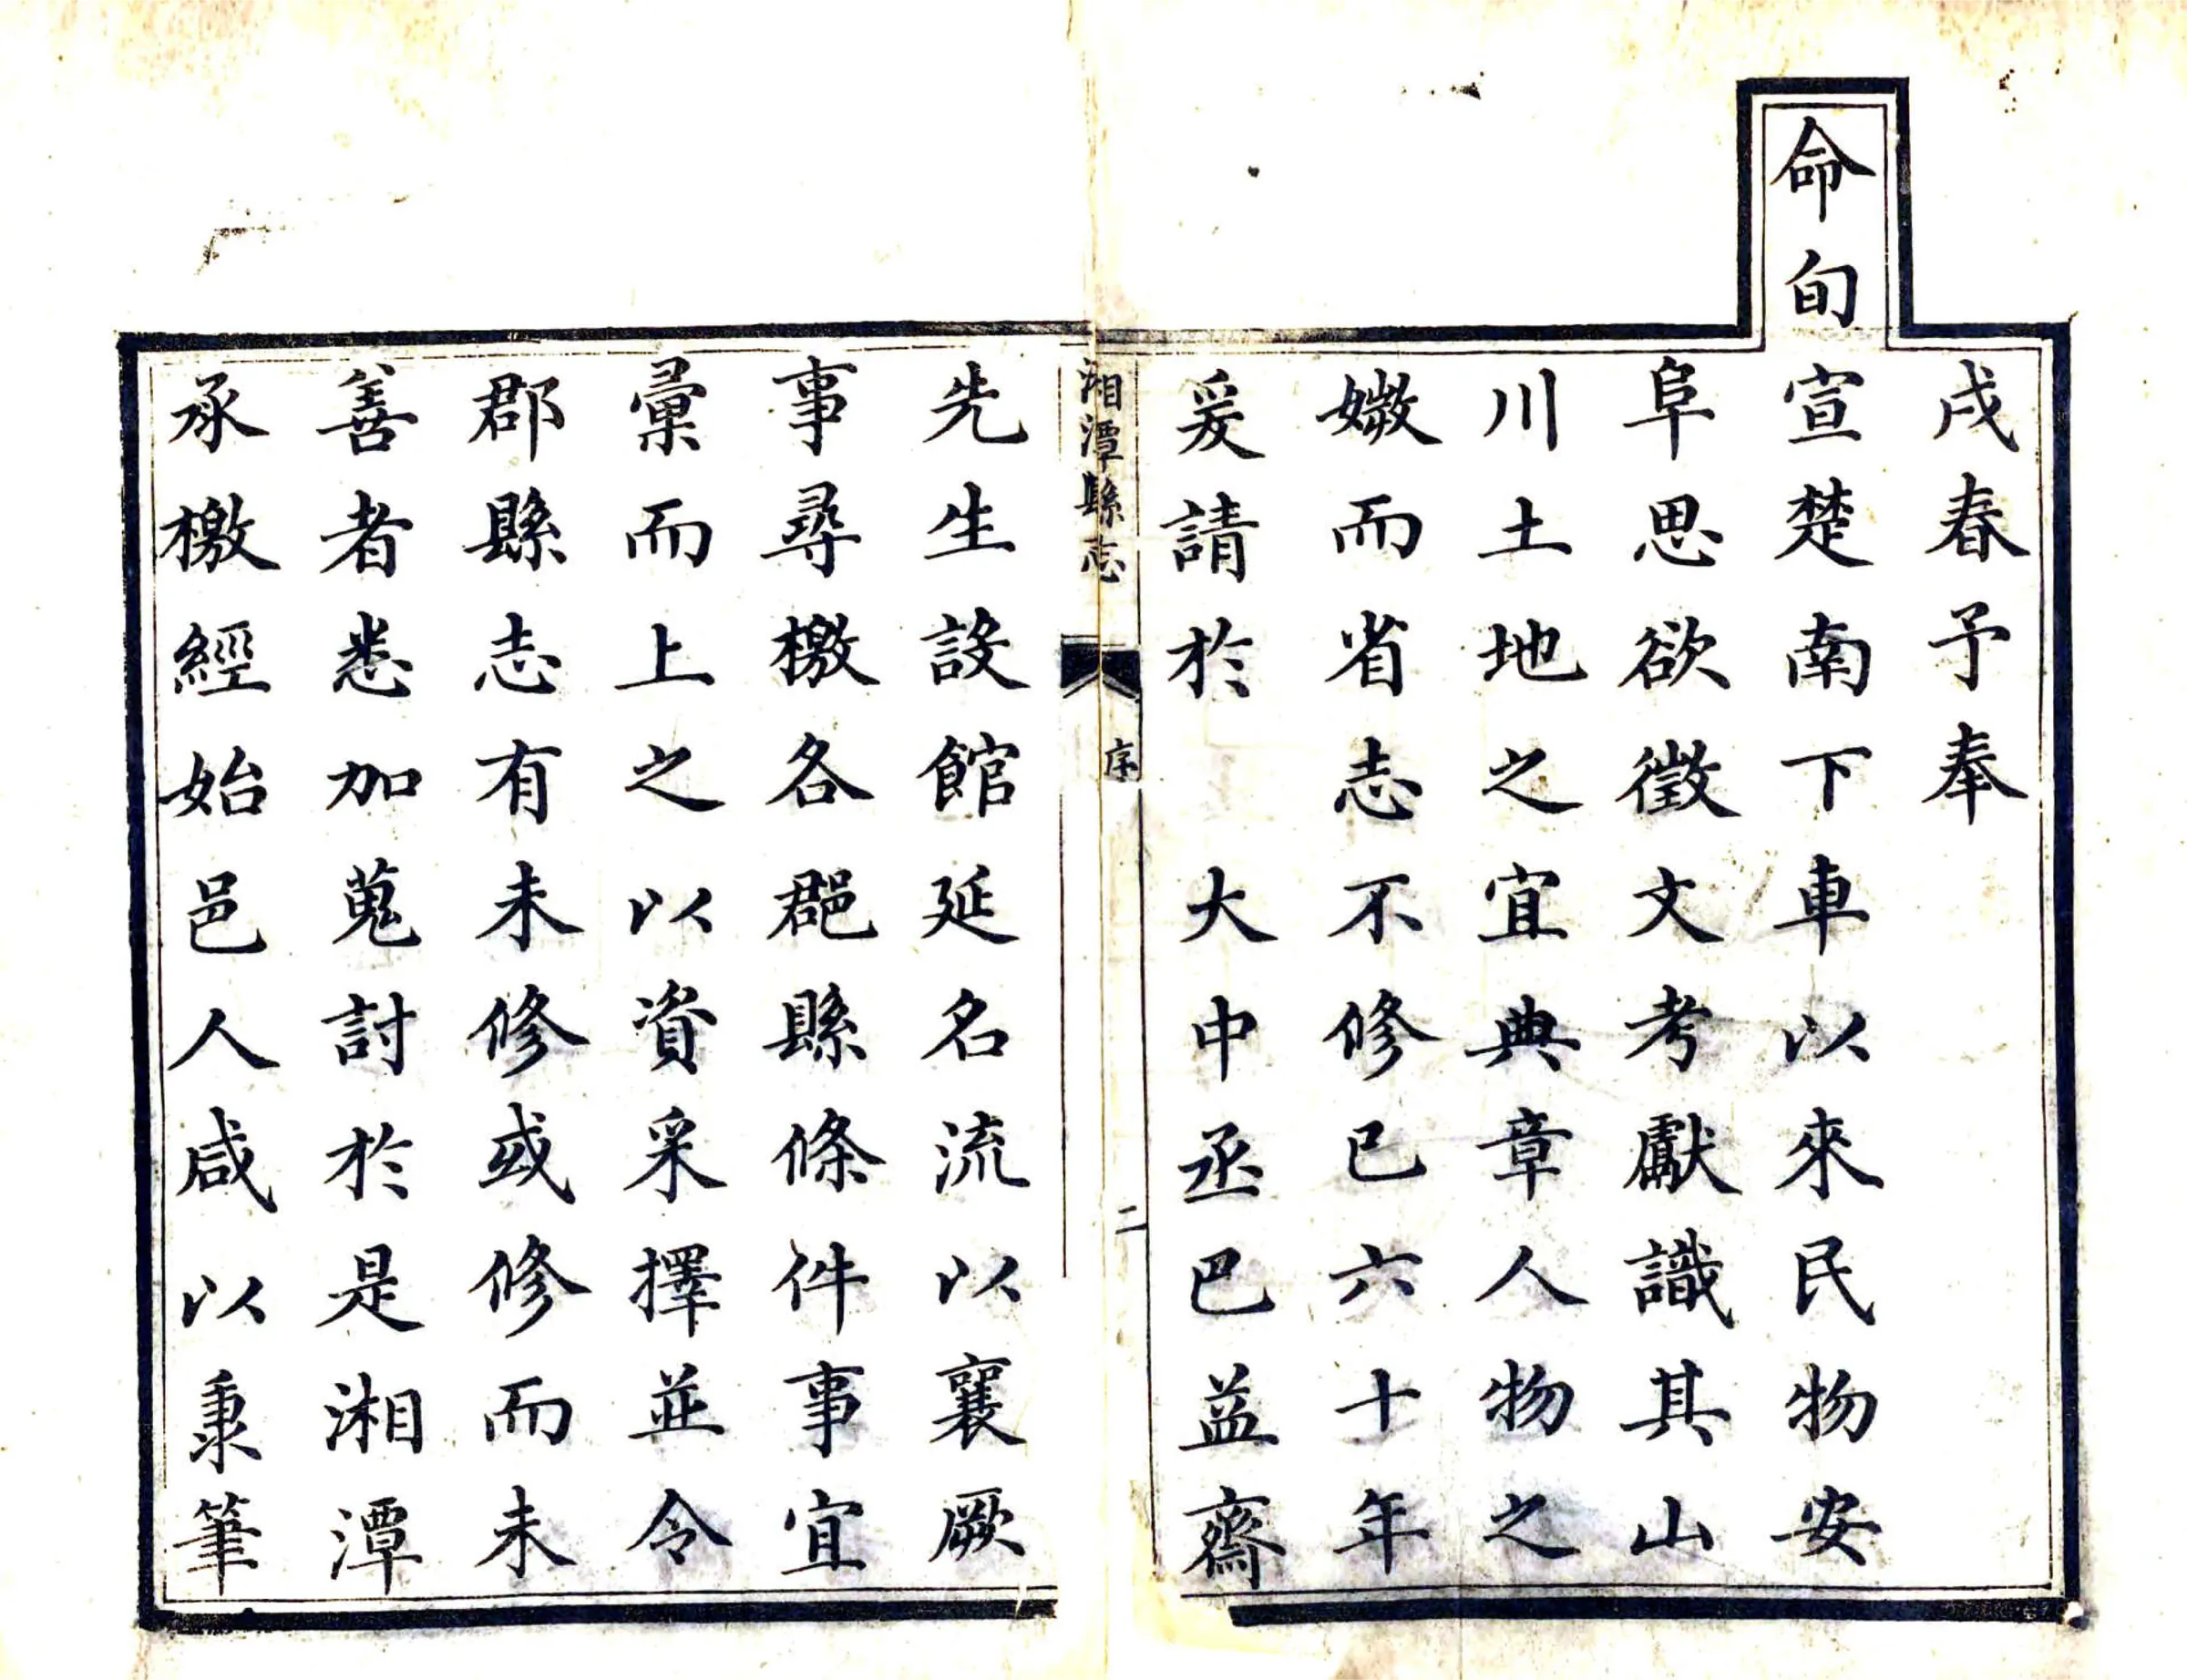 戌春予奉
命旬宣楚南下車以來民物安
阜思欲徵文考獻識其山
川土地之宜典章人物之
媺而省志不修已六十年
爰請於　大中丞巴益齋
湘潭縣志　序　二
先生設館延名流以襄厥
事尋檄各郡縣條件事宜
彙而上之以資采擇並令
郡縣志有未修或修而未
善者悉加蒐討於是湘潭
承檄經始邑人咸以秉筆